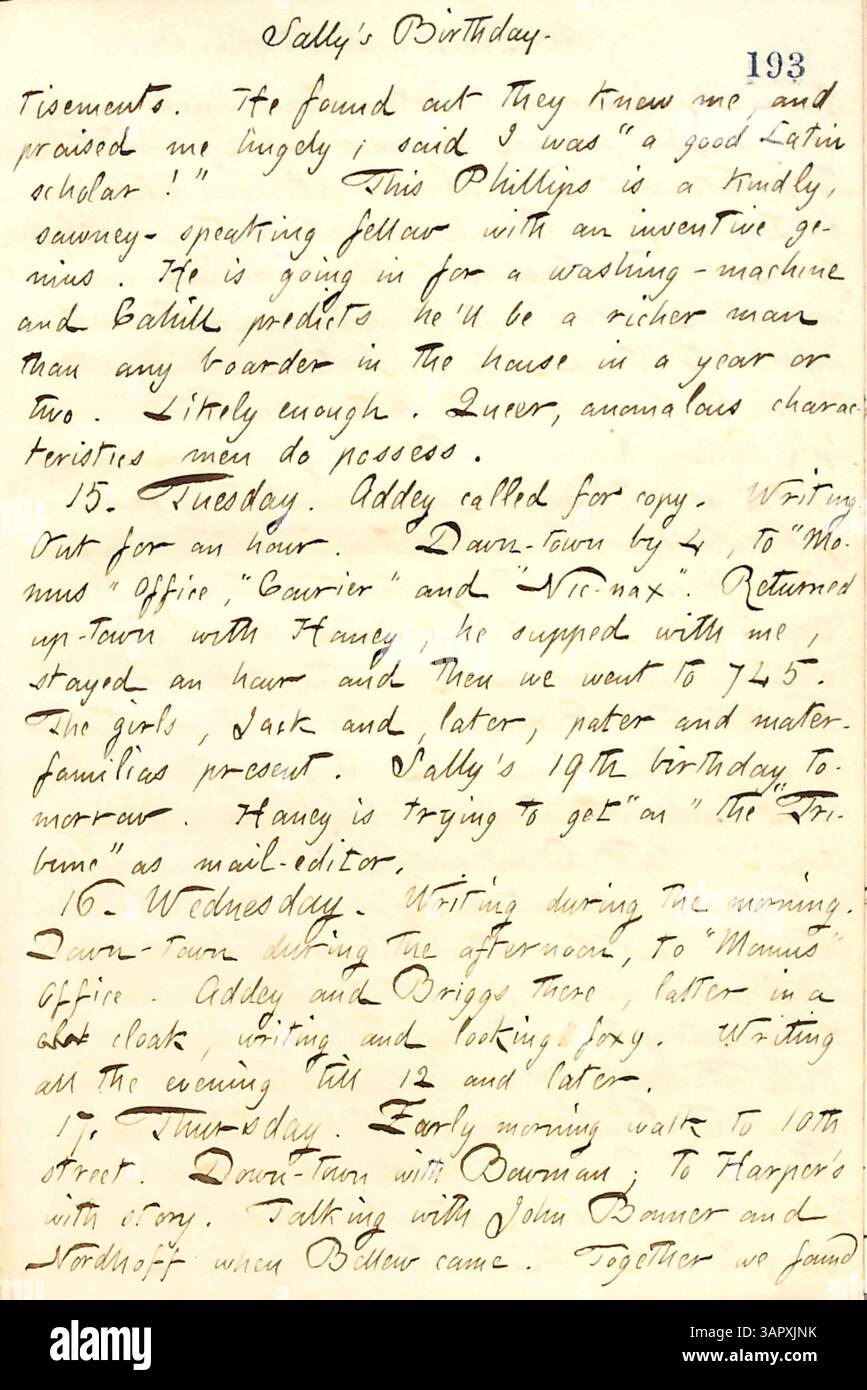 Sally's Birthday.
193
tisements. He found out they knew me, and
praised me hugely; said I was "a good Latin
scholar!" This Phillips is a kindly,
sawney-speaking fellow with an inventive ge-
nius. He is going in for a washing-machine
and Cahill predicts he'll be a richer man
than any boarder in the house in a year or
two. Likely enough. Queer, anomalous charac-
teristics men do possess.
15. Tuesday. Addey called for copy. Writing.
Out for an hour. Down-town by 4, to "Mo-
mus" Office, "Courier" and "Nic-nax". Returned
up-town with Haney, he supped with me,
stayed an hour and then we went to 745.
The girls, Jack and, later, pater and mater-
familias present. Sally's 19th birthday to-
morrow. Haney is trying to get "on" the "Tri-
bune" as mail-editor.
16. Wednesday. Writing during the morning.
Down-town during the afternoon, to "Momus"
Office. Addey and Briggs there, latter in a
cloak, writing and looking foxy. Writing
all the evening till 12 and later.
17. Thursday. Early morning walk to 10th
street. Down-town with Bowman; to Harper's
with story. Talking with John Bonner and
Nordhoff when Bellew came. Together we found
alamy
Image ID: 3APXJNK
www.alamy.com